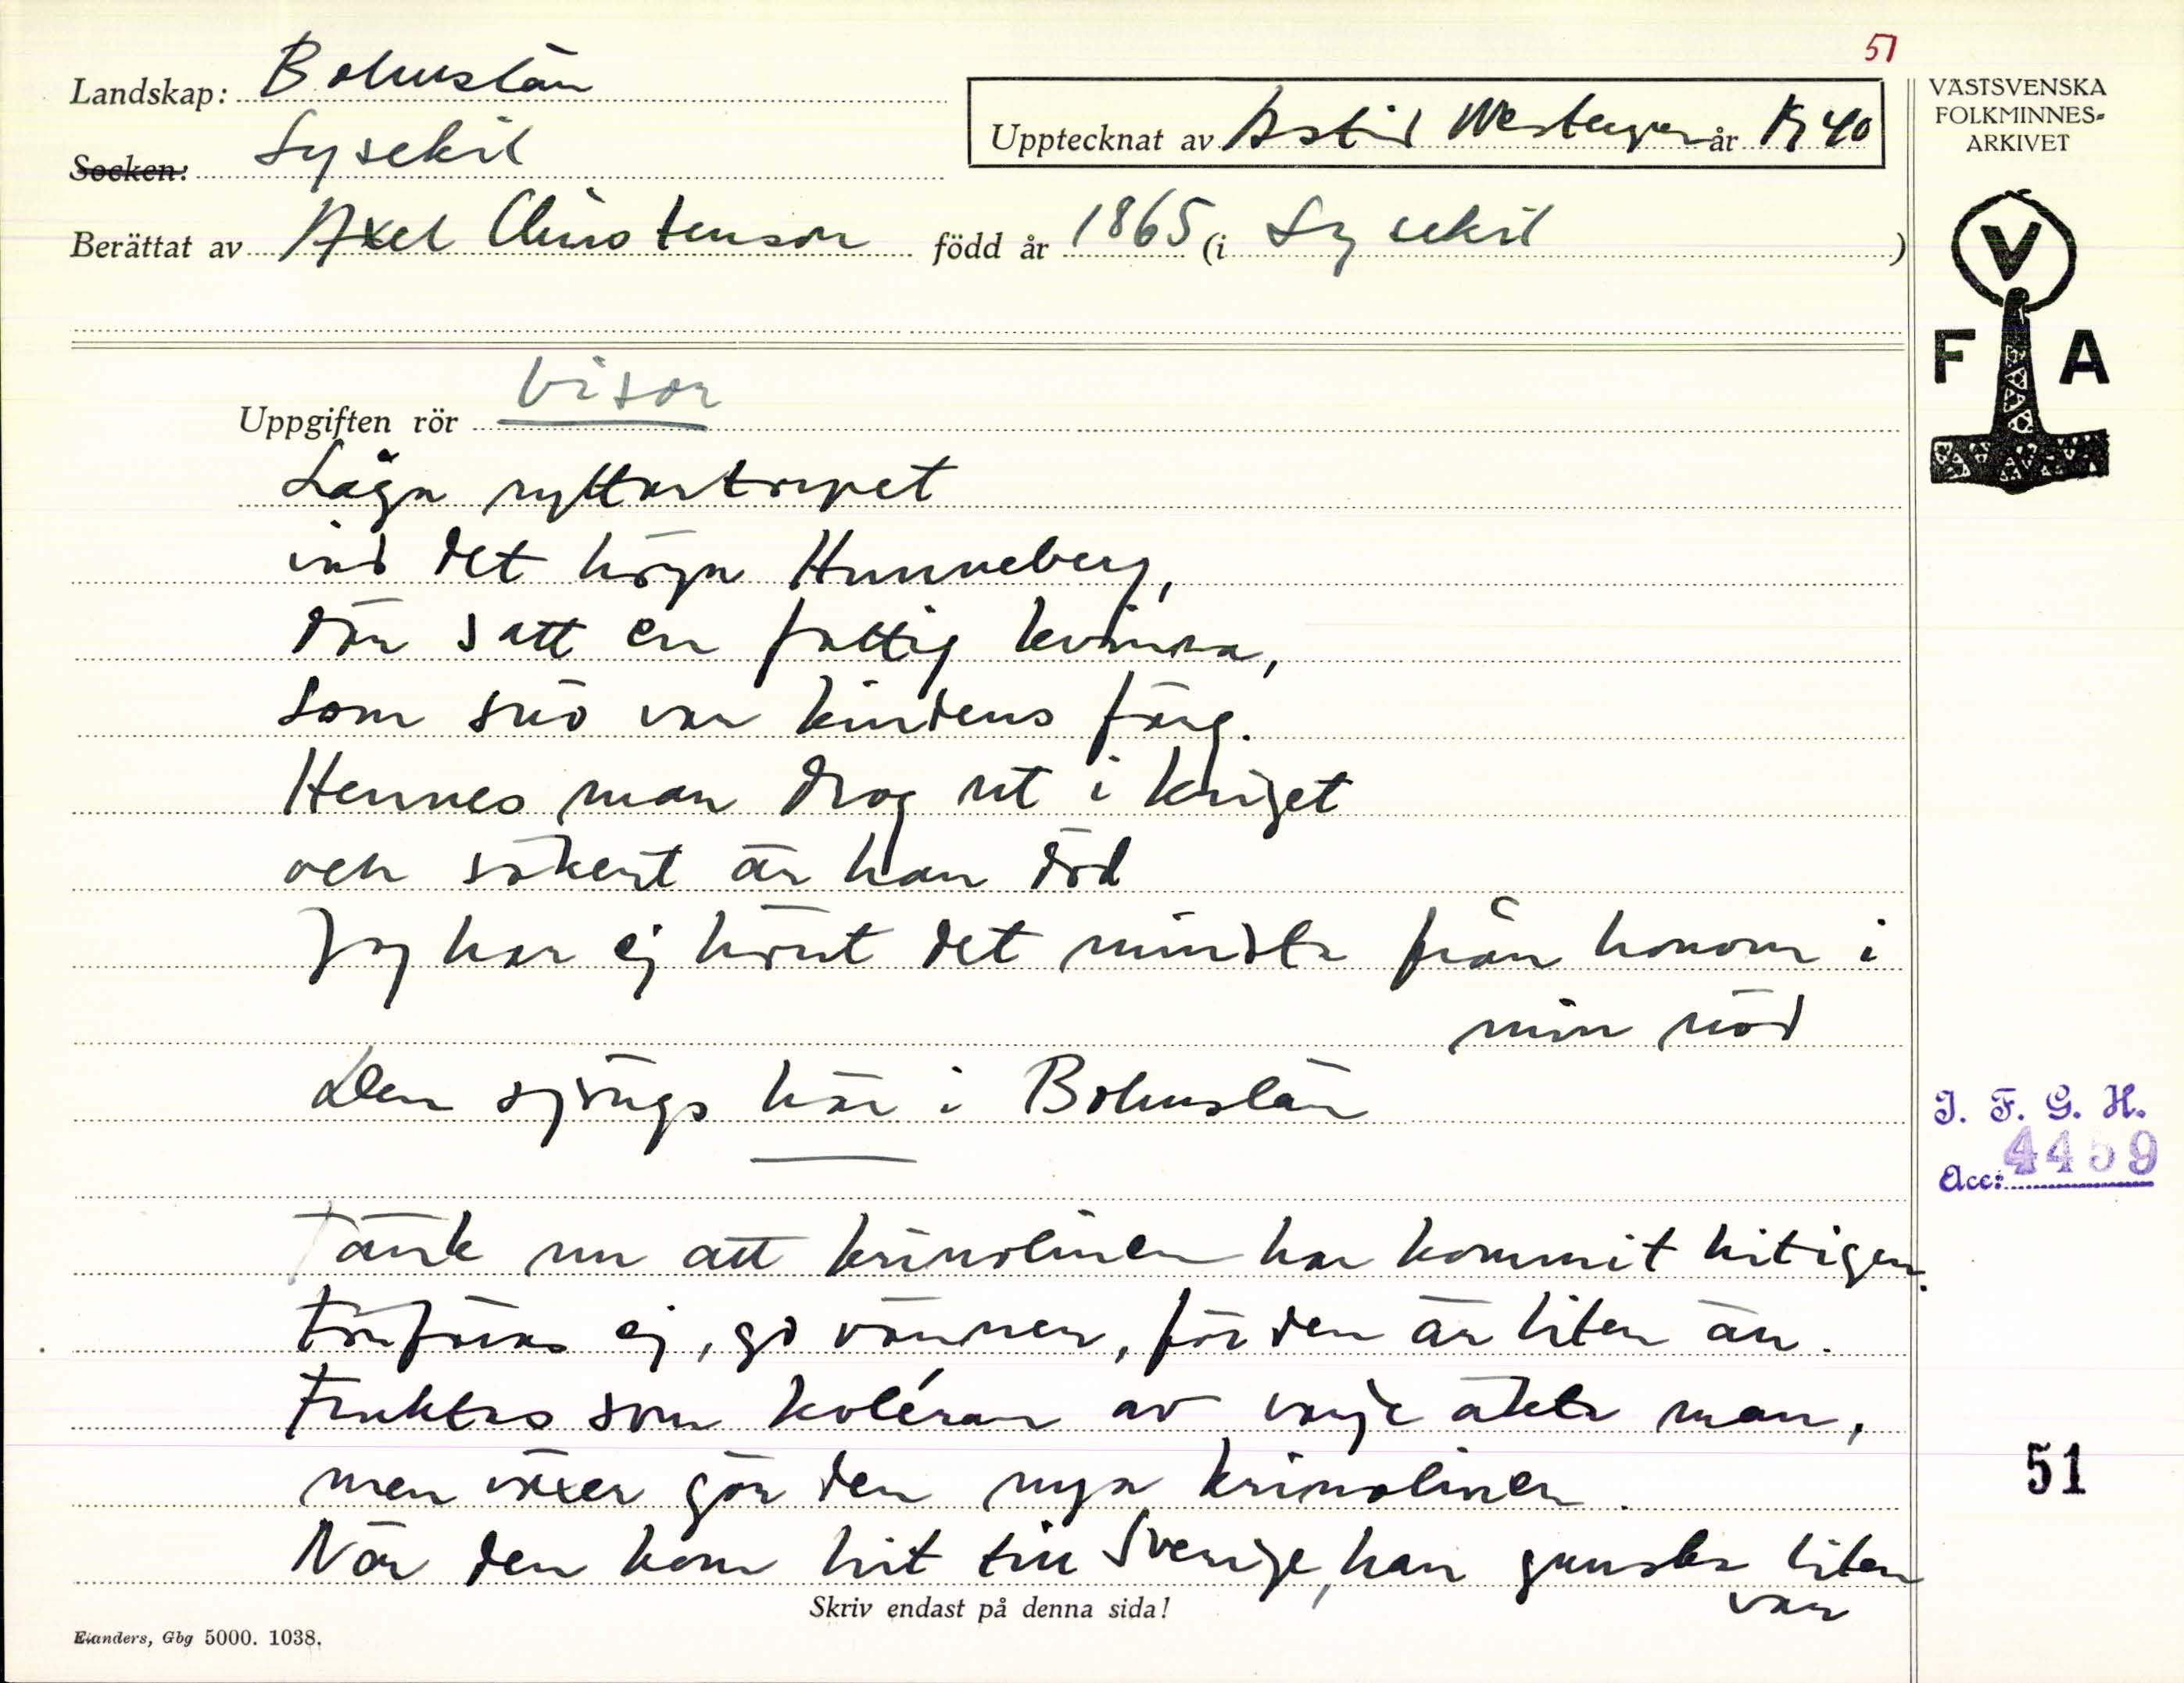 51
Landskap: Bohuslän
Socken: Lysekil
Upptecknat av Astrid Westerger år 1940
Berättat av Axel Christenson född år 1865 (i Lysekil)
VÄSTSVENSKA
FOLKMINNES-
ARKIVET
V
F A
Uppgiften rör Visor
Låga ryttartorpet
vid det höga Hunneberg,
där satt en fattig kvinna,
som snö var kindens färg.
Hennes man drog ut i kriget
och säkert är han död
Jag har ej hört det minsta från honom i
min nöd
Den sjöngs här i Bohuslän
Tänk nu att krinolinen har kommit hit igen.
Förfäras ej, go vänner, för den är liten än.
Fruktas som koléran av varje äkta man,
men växer gör den nya krinolinen.
När den kom hit till Sverige, han ganska liten
var
J. F. G. H.
Acc: 4459
51
Skriv endast på denna sida!
Elanders, Gbg 5000. 1038.